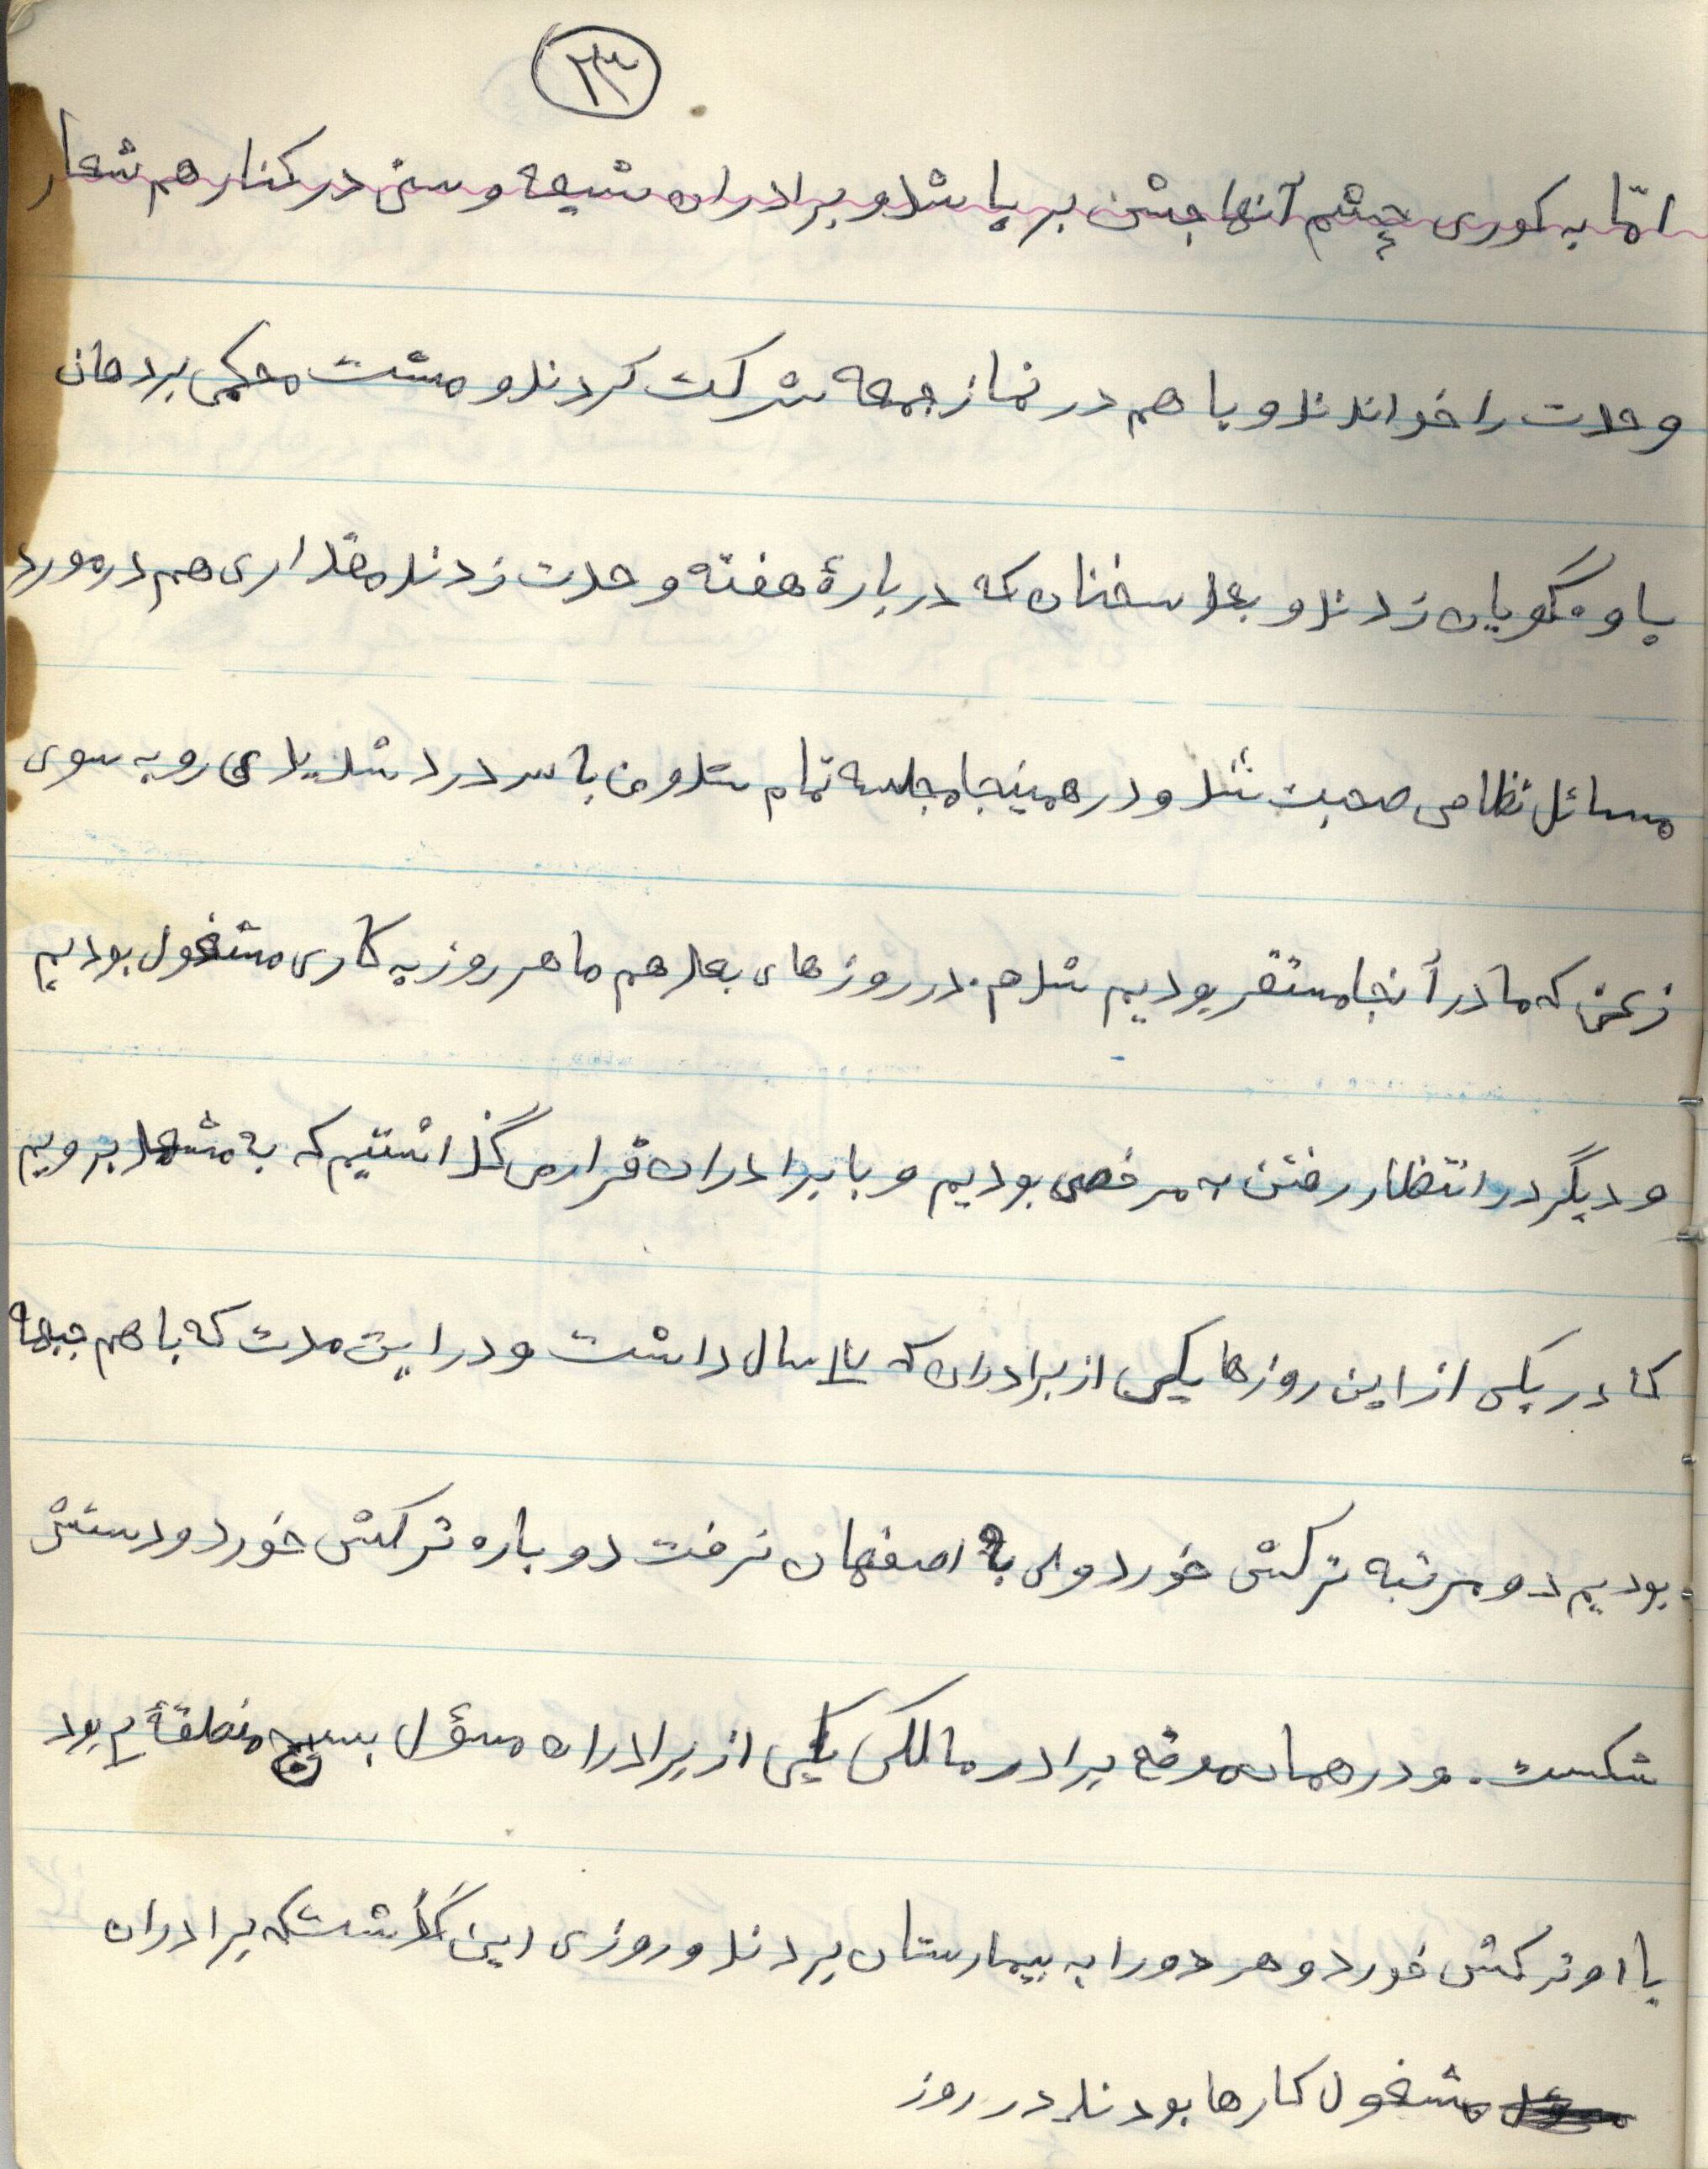 ۲۳
امّا به کوری چشم آنها جشن برپا شد و برادران شیعه و سنی در کنار هم شعار
وحدت را خواندند و با هم در نماز جمعه شرکت کردند و مشت محکمی بر دهان
یاوه گویان زدند و بعد سخنان که دربارهٔ هفته وحدت زدند مقداری هم در مورد
مسائل نظامی صحبت شد و در همینجا مجلسه تمام شد و من با سردرد شدیدی رو به سوی
که ما در آنجا مستقر بودیم شدم. در روزهای بعد هم ما هر روز به کاری مشغول بودیم
و دیگر در انتظار رفتن به مرخصی بودیم و با برادران قرار می گذاشتیم که به مشهد برویم
در یکی از این روزها یکی از برادران که سال داشت و در این مدت که با هم جبهه
بودیم دو مرتبه ترکش خورد ولی به اصفهان نرفت دوباره ترکش خورد و دستش
شکست. و در همان موقع برادر مالکی یکی از برادران مسؤل بسیج منطقهٔ ۲ بود
با او ترکش خورد و هر دو را به بیمارستان بردند و روزی این گذشت که برادران
مشغول کارها بودند در روز